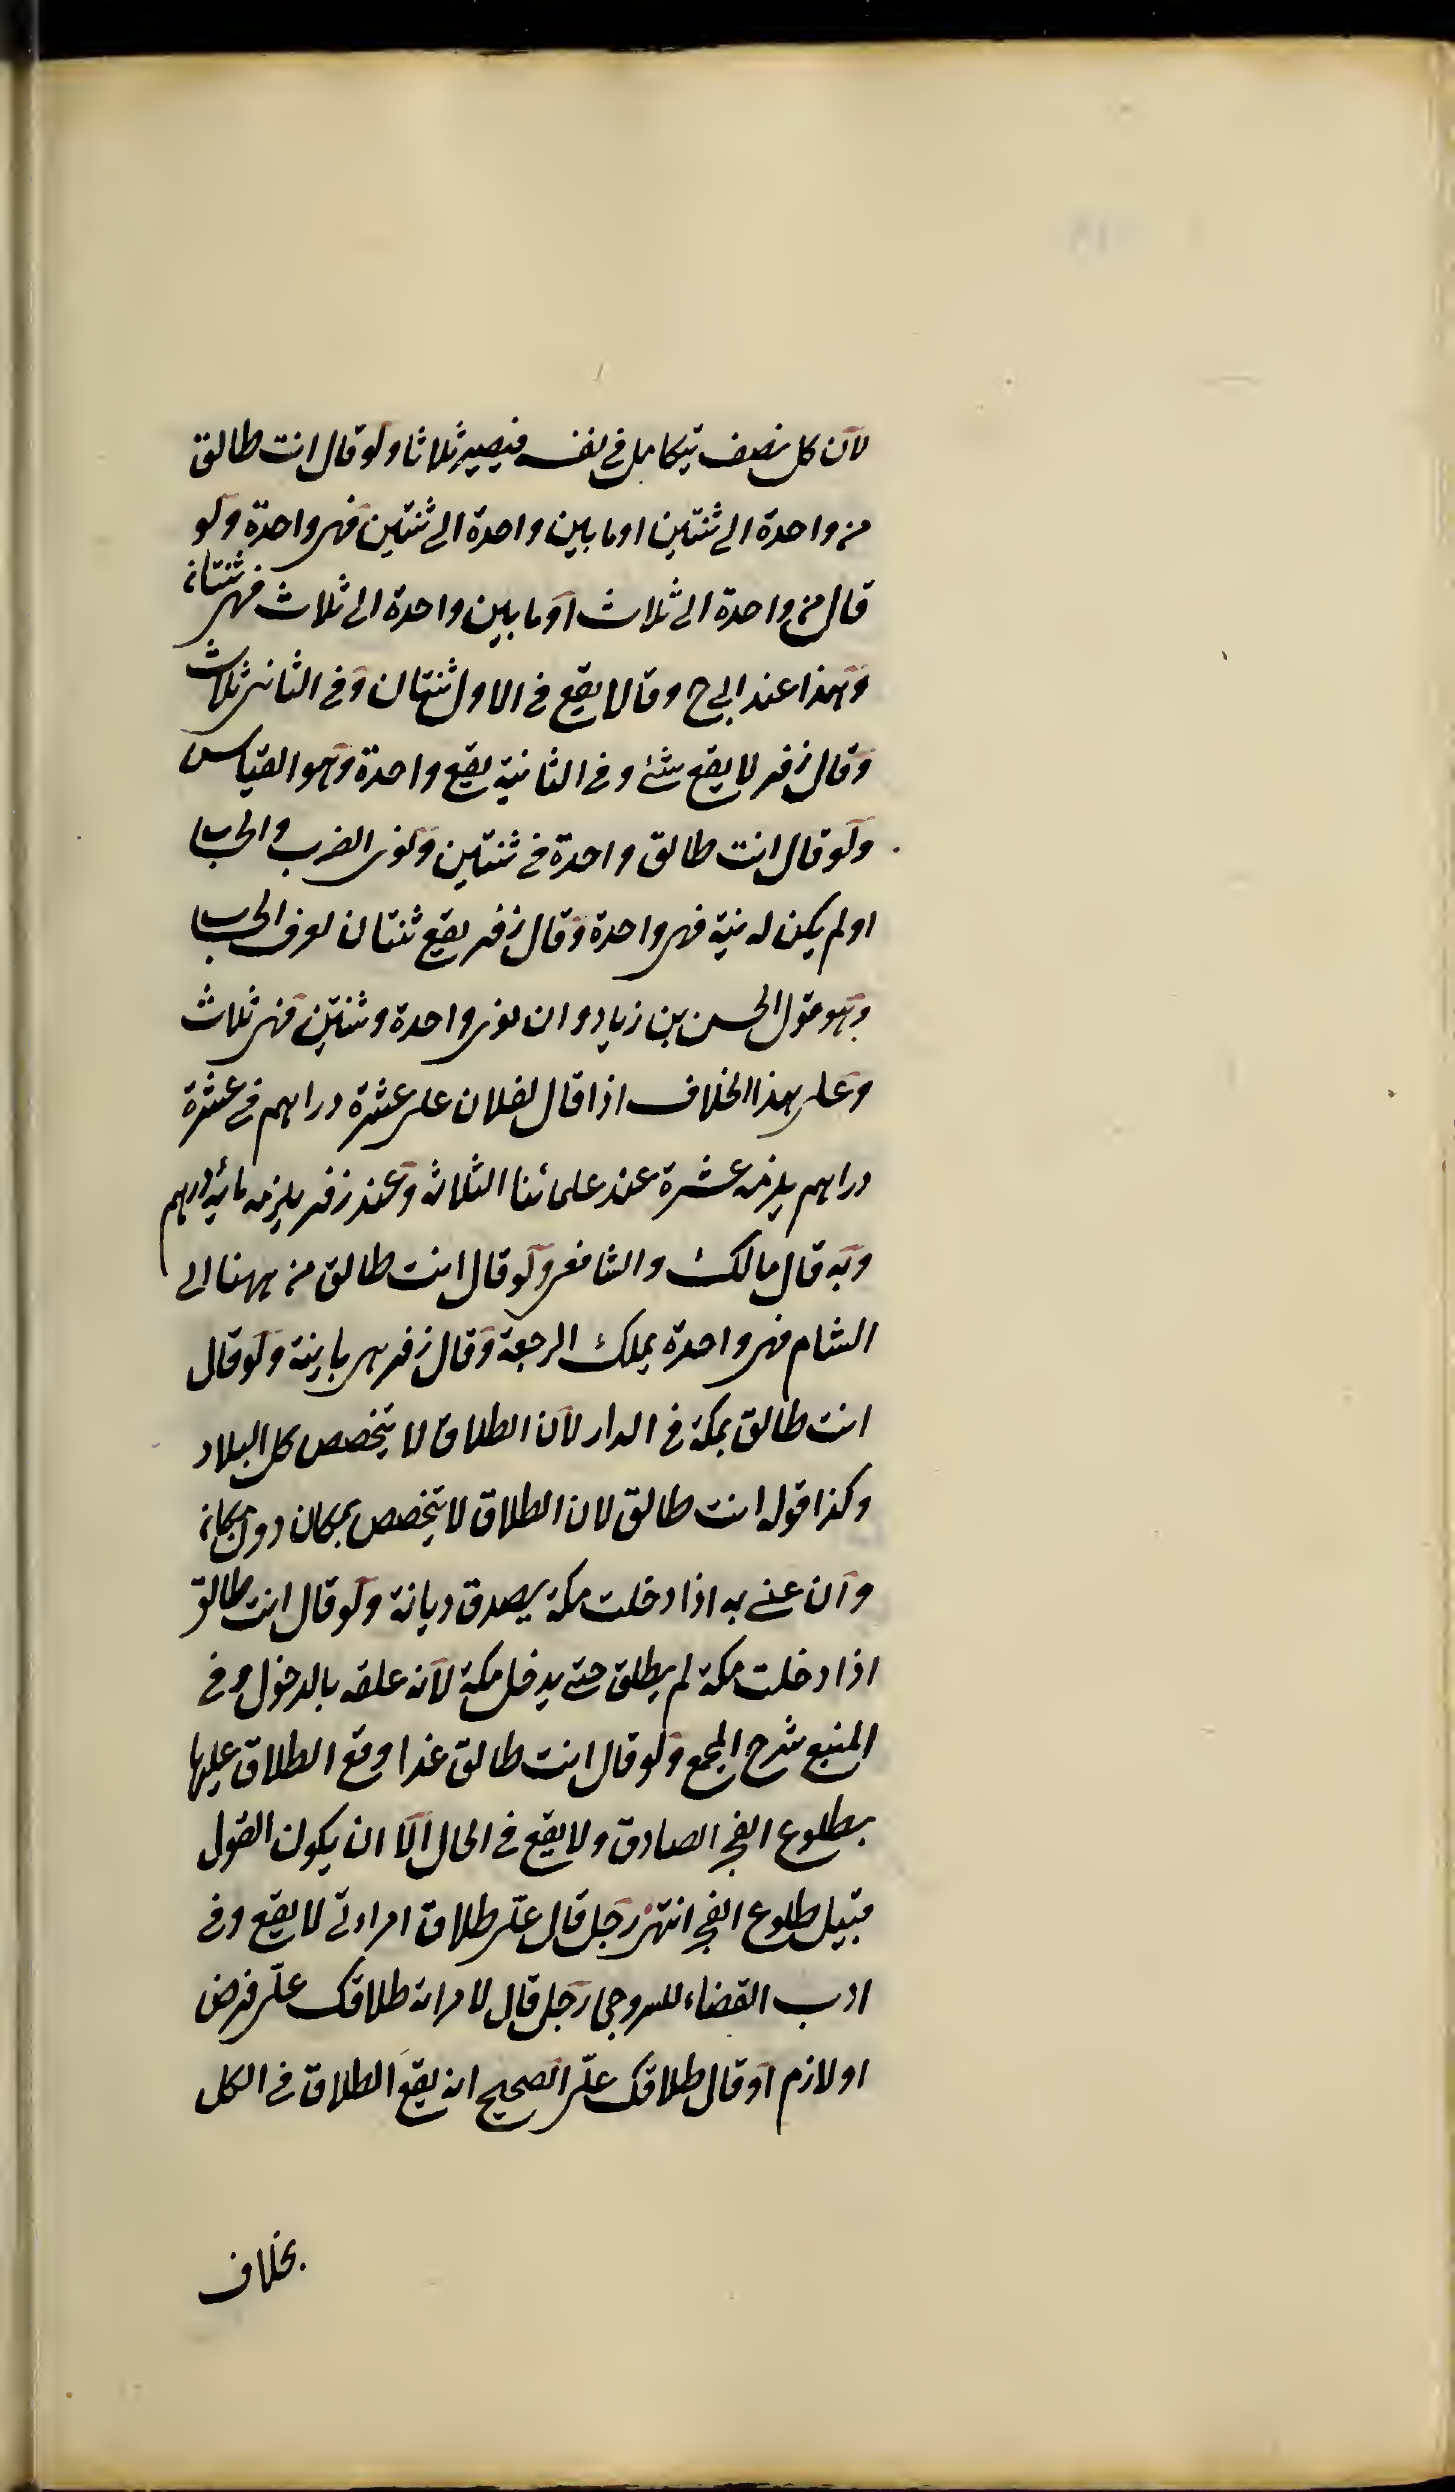 لان كل نصف يتكامل فى نفسه فيصير ثلاثا ولو قال انت طالق
من واحدة الى ثنتين او ما بين واحدة الى ثنتين فهى واحدة ولو
قال من واحدة الى ثلاث او ما بين واحدة الى ثلاث فهى ثنتان
وهذا عند ابى ح وقالا يقع فى الاول ثنتان وفى الثانى ثلاث
وقال زفر لا يقع شئ وفى الثانية يقع واحدة وهو القياس
ولو قال انت طالق واحدة فى ثنتين ونوى الضرب والحساب
او لم يكن له نية فهى واحدة وقال زفر يقع ثنتان لعرف الحساب
وهو قول الحسن بن زياد وان نوى واحدة وثنتين فهى ثلاث
وعلى هذا الخلاف اذا قال لفلان على عشرة دراهم فى عشرة
دراهم يلزمه عشرة عند علمائنا الثلاثة وعند زفر يلزمه مائة درهم
وبه قال مالك والشافعى ولو قال انت طالق من ههنا الى
الشام فهى واحدة يملك الرجعة وقال زفر هى باينة ولو قال
انت طالق بمكة فى الدار لان الطلاق لا يتخصص كل البلاد
وكذا قوله انت طالق لان الطلاق لا يتخصص بمكان دون مكان
وان عنى به اذا دخلت مكة يصدق ديانة ولو قال انت طالق
اذا دخلت مكة لم يطلق حتى يدخل مكة لانه علقه بالدخول وفى
المنبع شرح المجمع ولو قال انت طالق غدا وقع الطلاق عليها
بطلوع الفجر الصادق ولا يقع فى الحال الا ان يكون القول
قبيل طلوع الفجر انتهى رجل قال على طلاق امراءتى لا يقع وفى
ادب القضاء للسروجى رجل قال لامراته طلاقك على فرض
او لازم او قال طلاقك على الصحيح انه يقع الطلاق فى الكل
بخلاف